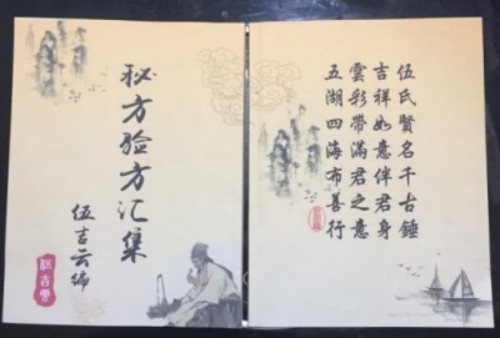 秘方验方汇集
伍吉云编
伍吉雲
伍氏賢名千古錘
吉祥如意伴君身
雲彩帶滿君之意
五湖四海布善行